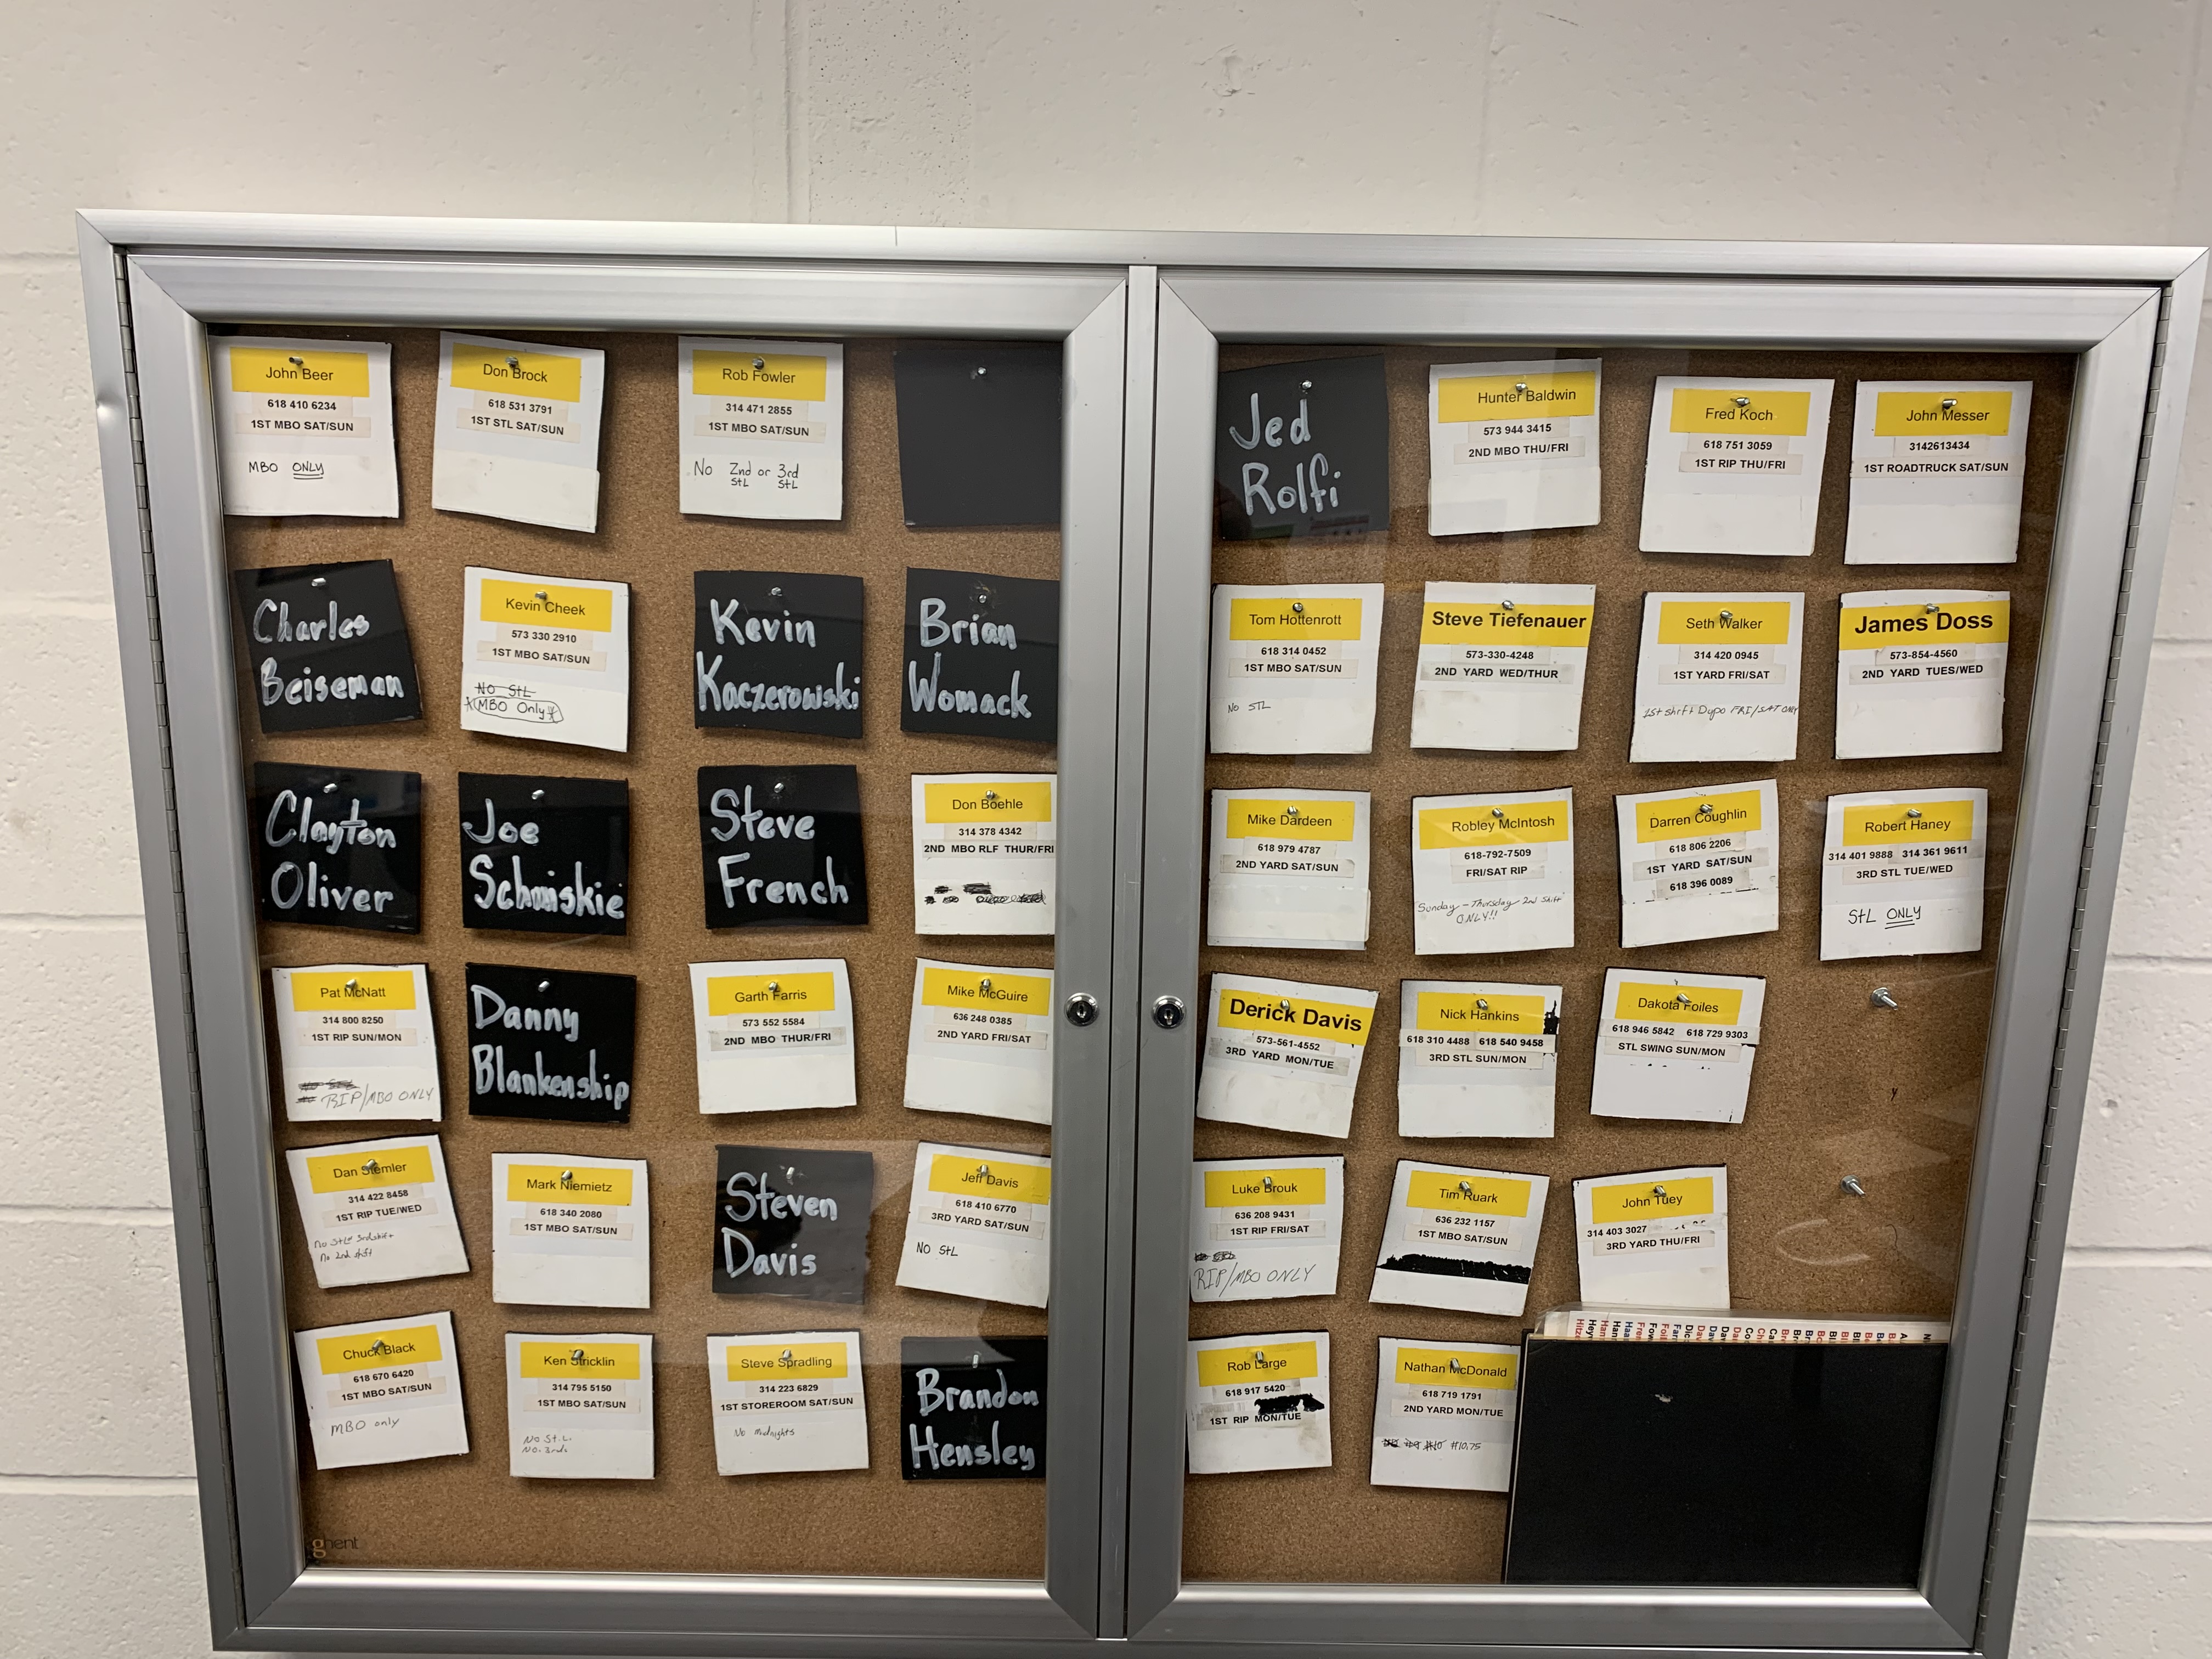 John Beer
618 410 6234
1ST MBO SAT/SUN
MBO ONLY
Don Brock
618 531 3791
1ST STL SAT/SUN
Rob Fowler
314 471 2855
1ST MBO SAT/SUN
No 2nd or 3rd
StL StL
Charles
Beiseman
Kevin Cheek
573 330 2910
1ST MBO SAT/SUN
No StL
MBO Only
Kevin
Kaczerowski
Brian
Womack
Clayton
Oliver
Joe
Schmiskie
Steve
French
Don Boehle
314 378 4342
2ND MBO RLF THUR/FRI
Pat McNatt
314 800 8250
1ST RIP SUN/MON
RIP/MBO ONLY
Danny
Blankenship
Garth Farris
573 552 5584
2ND MBO THUR/FRI
Mike McGuire
636 248 0385
2ND YARD FRI/SAT
Dan Stemler
314 422 8458
1ST RIP TUE/WED
No StL 3rd shift
No 2nd shift
Mark Niemietz
618 340 2080
1ST MBO SAT/SUN
Steven
Davis
Jeff Davis
618 410 6770
3RD YARD SAT/SUN
NO StL
Chuck Black
618 670 6420
1ST MBO SAT/SUN
MBO only
Ken Stricklin
314 795 5150
1ST MBO SAT/SUN
No St.L.
No. 3rds
Steve Spradling
314 223 6829
1ST STOREROOM SAT/SUN
No Midnights
Brandon
Hensley
ghent
Jed
Rolfi
Hunter Baldwin
573 944 3415
2ND MBO THU/FRI
Fred Koch
618 751 3059
1ST RIP THU/FRI
John Messer
3142613434
1ST ROADTRUCK SAT/SUN
Tom Hottenrott
618 314 0452
1ST MBO SAT/SUN
No STL
Steve Tiefenauer
573-330-4248
2ND YARD WED/THUR
Seth Walker
314 420 0945
1ST YARD FRI/SAT
1st shift Dupo FRI/SAT ONLY
James Doss
573-854-4560
2ND YARD TUES/WED
Mike Dardeen
618 979 4787
2ND YARD SAT/SUN
Robley McIntosh
618-792-7509
FRI/SAT RIP
Sunday - Thursday 2nd shift
ONLY!!
Darren Coughlin
618 806 2206
1ST YARD SAT/SUN
618 396 0089
Robert Haney
314 401 9888 314 361 9611
3RD STL TUE/WED
StL ONLY
Derick Davis
573-561-4552
3RD YARD MON/TUE
Nick Hankins
618 310 4488 618 540 9458
3RD STL SUN/MON
Dakota Foiles
618 946 5842 618 729 9303
STL SWING SUN/MON
Luke Brouk
636 208 9431
1ST RIP FRI/SAT
RIP/MBO ONLY
Tim Ruark
636 232 1157
1ST MBO SAT/SUN
John Tuey
314 403 3027
3RD YARD THU/FRI
Rob Large
618 917 5420
1ST RIP MON/TUE
Nathan McDonald
618 719 1791
2ND YARD MON/TUE
#10.75